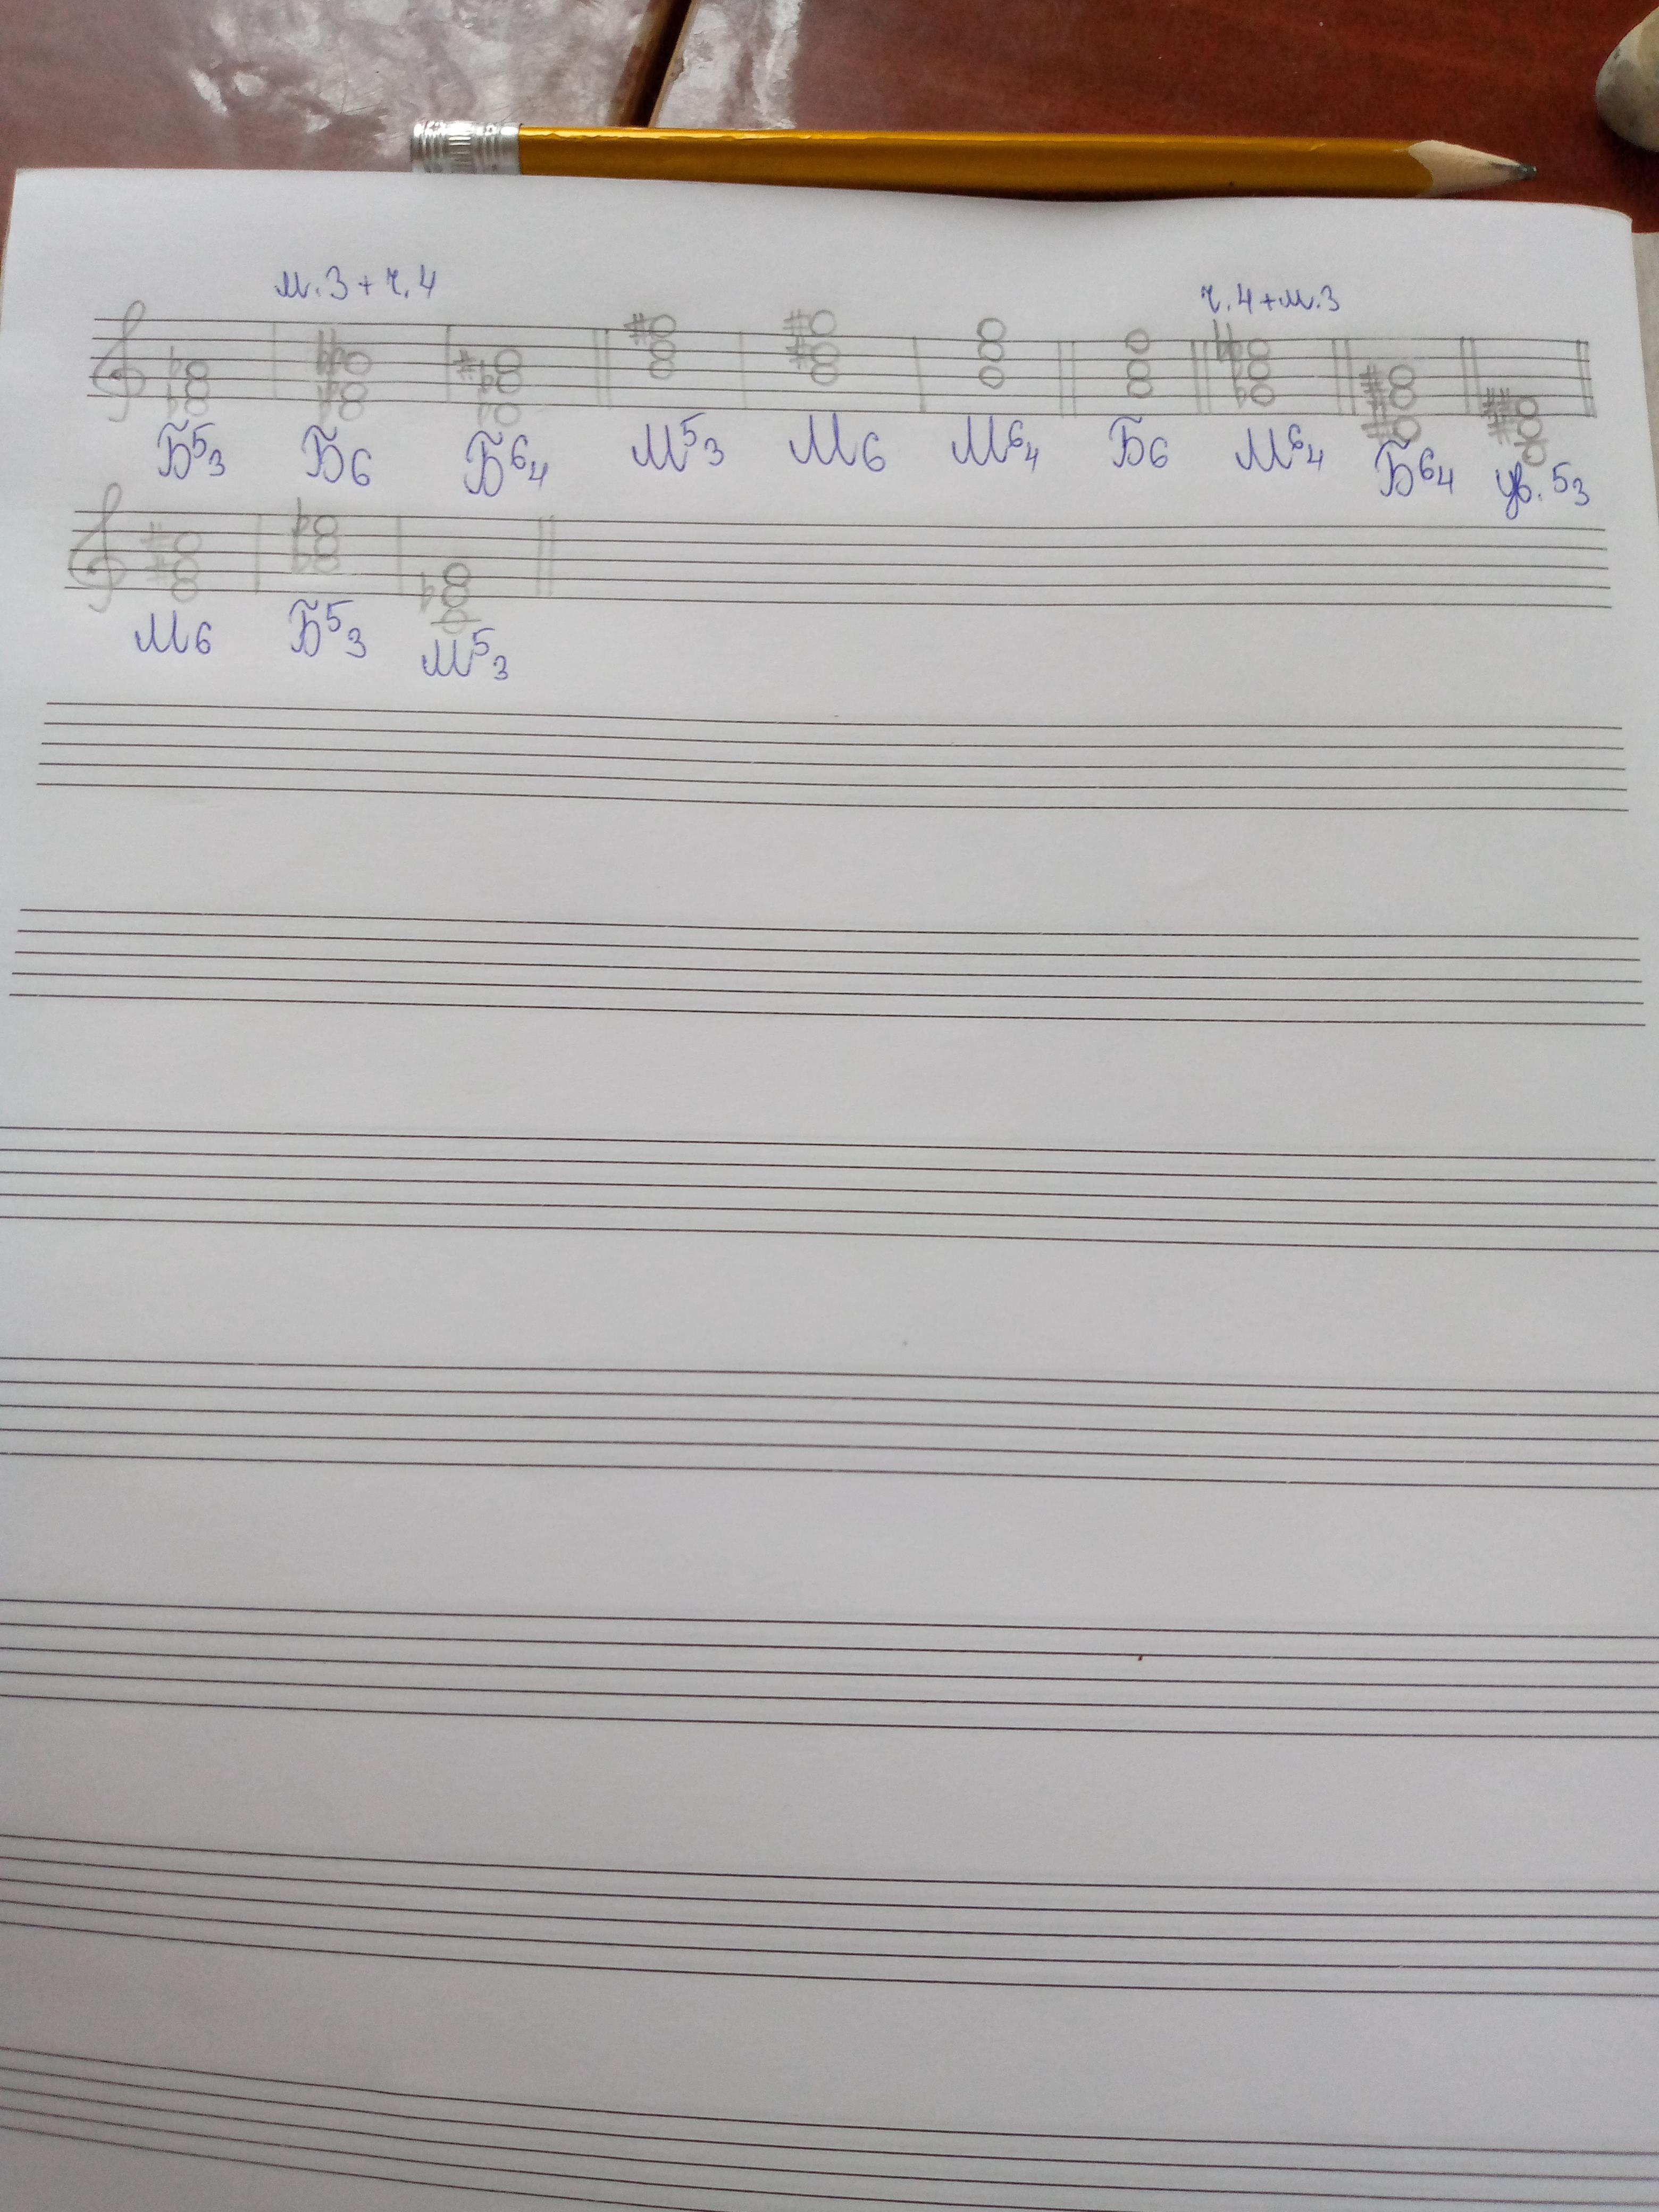 м.3+ч.4 ч.4+м.3
Б⁵₃ Б₆ Б⁶₄ М⁵₃ М₆ М⁶₄ Б₆ М⁶₄ Б⁶₄ ув.⁵₃
М₆ Б⁵₃ М⁵₃